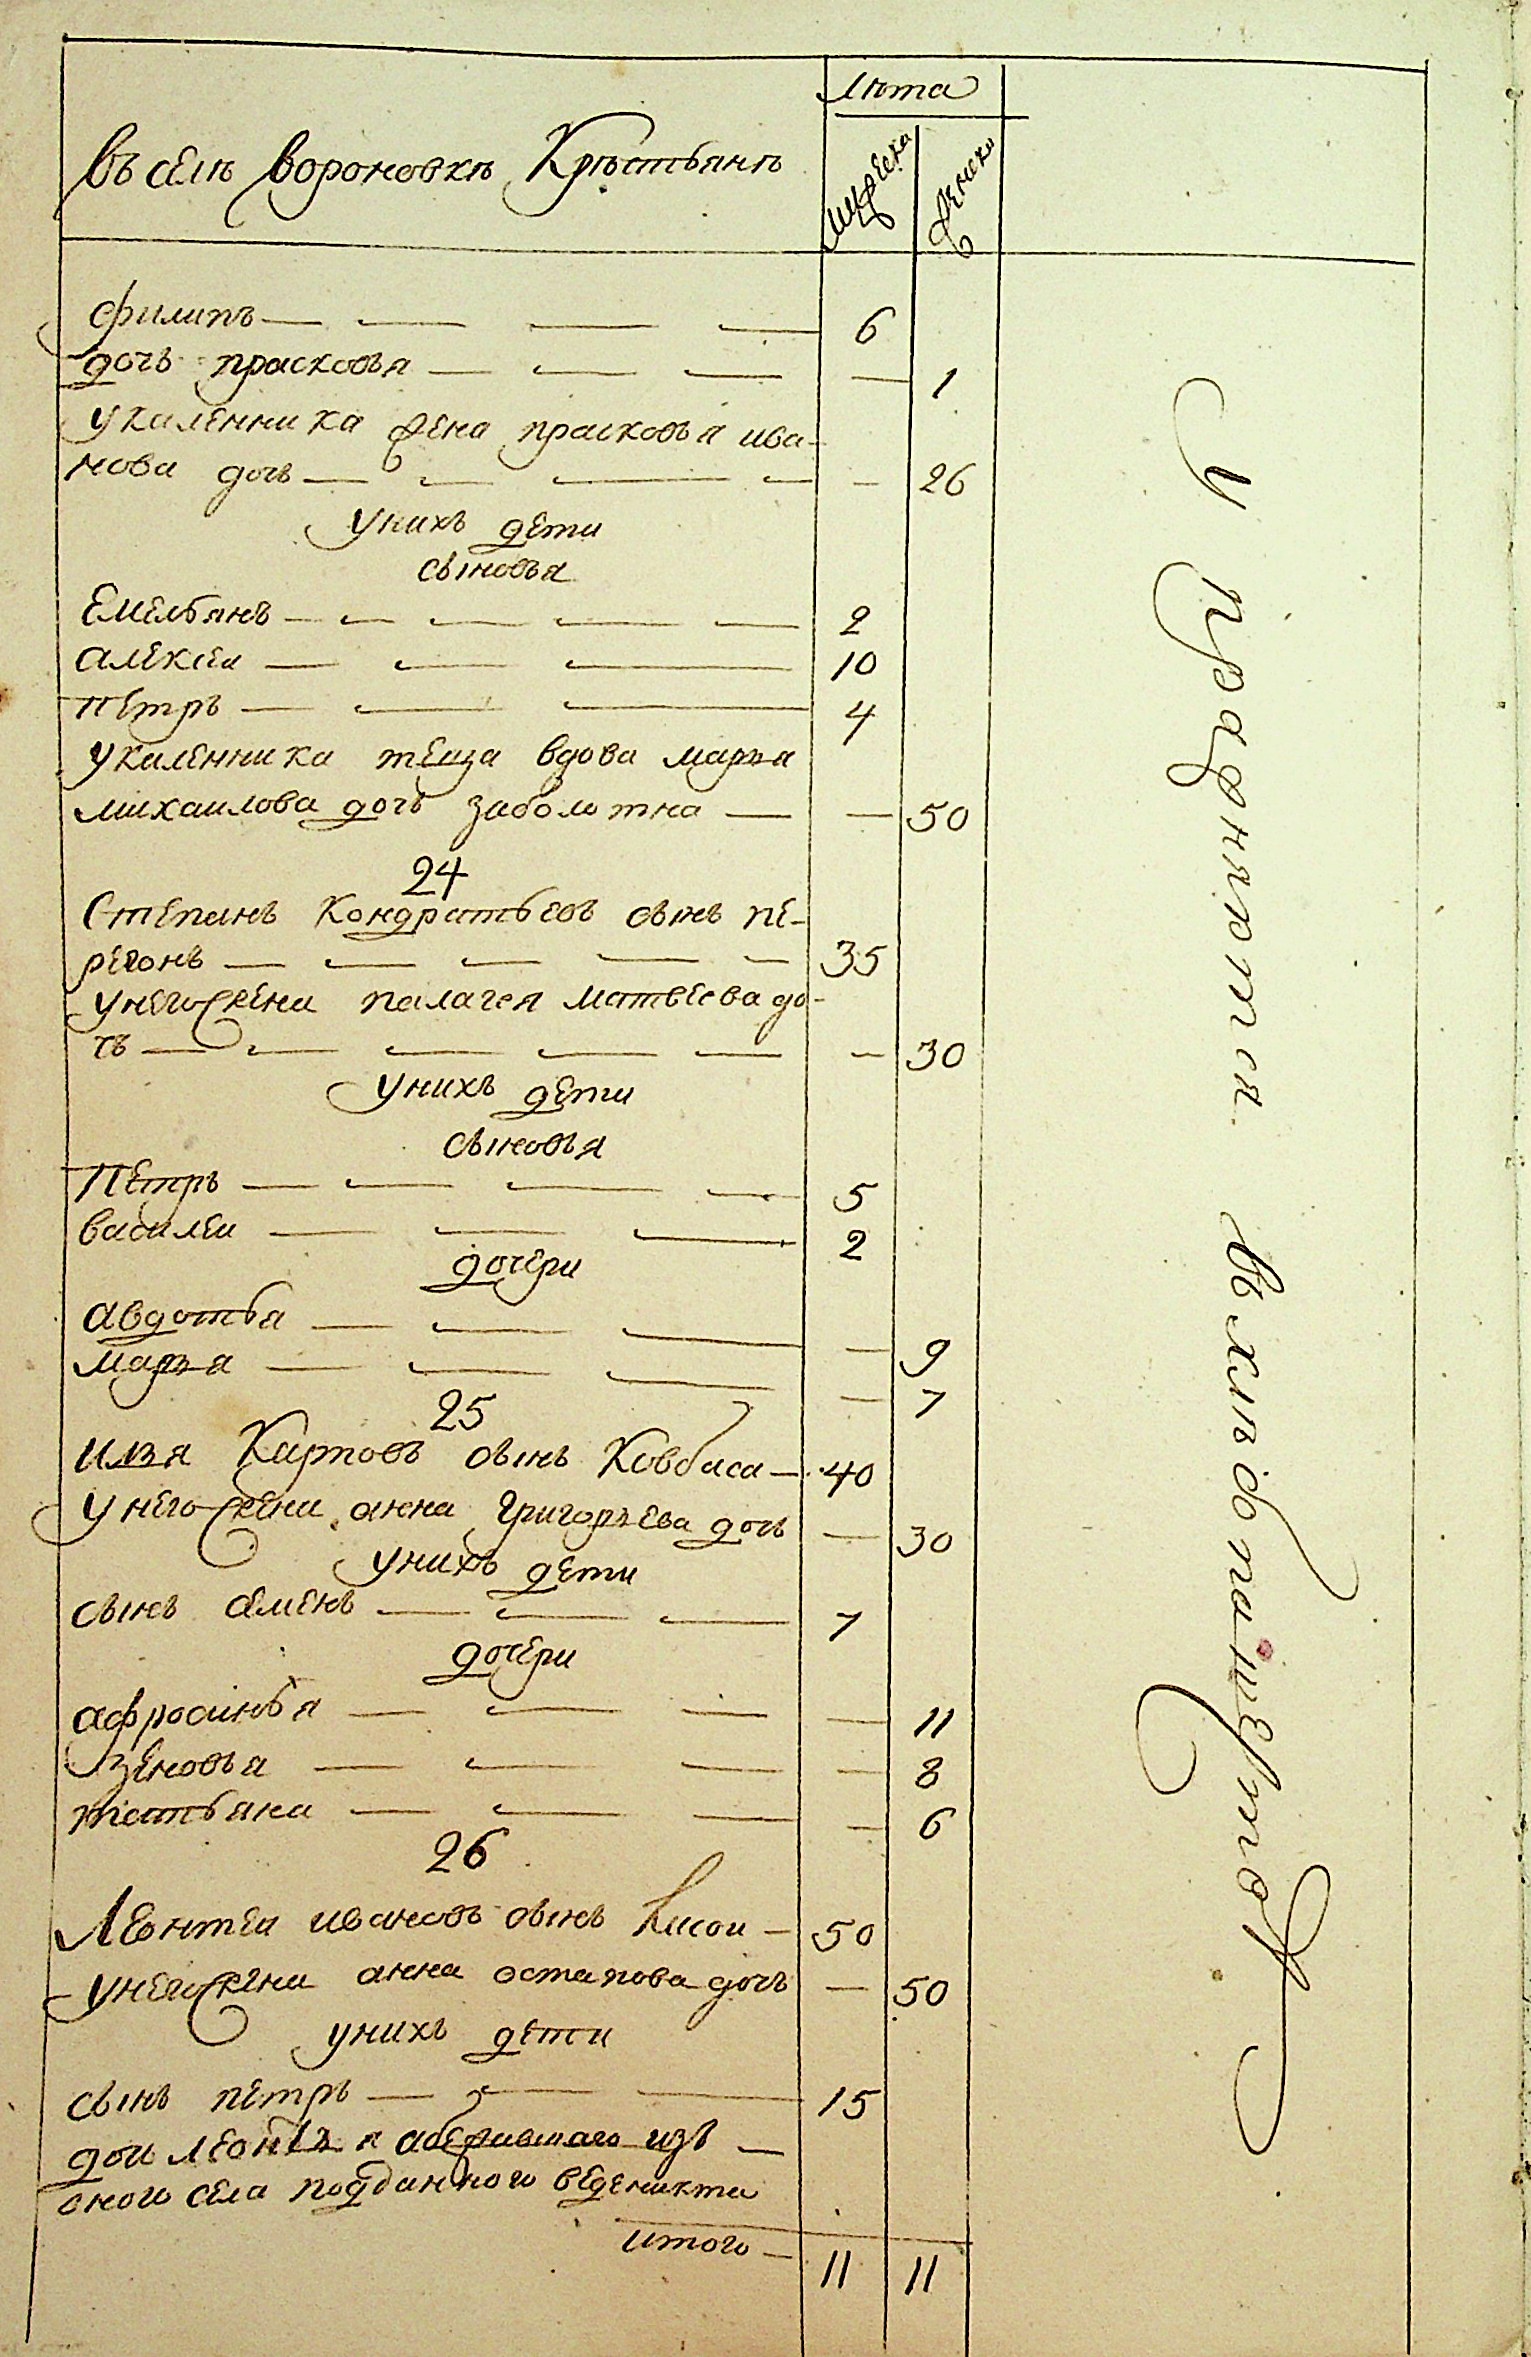 Лѣта
въ селѣ вороновкѣ Крѣстьянѣ
мужеска
женска
филипъ — — — — 6
дочь прасковья — — — — 1
у каленника жена прасковья ива-
нова дочь — — — — — 26
у нихъ дети
сыновья
Емельянъ — — — — — 2
алексеи — — — 10
петръ — — — 4
у каленника теща вдова марья
михаилова дочь заболотна — — 50
24
Степанъ Кондратьевъ сынъ пе-
регонъ — — — — — 35
у него жена палагея матвеева до-
чь — — — — — — 30
у нихъ дети
сыновья
Петръ — — — — 5
василеи — — — 2
дочери
авдотья — — — — 9
марья — — — — 7
25
илья Карповъ сынъ Ковбаса — 40
у него жена анна григорьева дочь — 30
у нихъ дети
сынъ семенъ — — — 7
дочери
афросинья — — — — 11
зеновья — — — — 8
татьяна — — — — 6
26
Леонтеи ивановъ сынъ — 50
у него жена анна остапова дочь — 50
у нихъ дети
сынъ петръ — — — 15
изъ —
оного села подданного
итого — 11 11
упражняются въ хлѣбопашествѣ